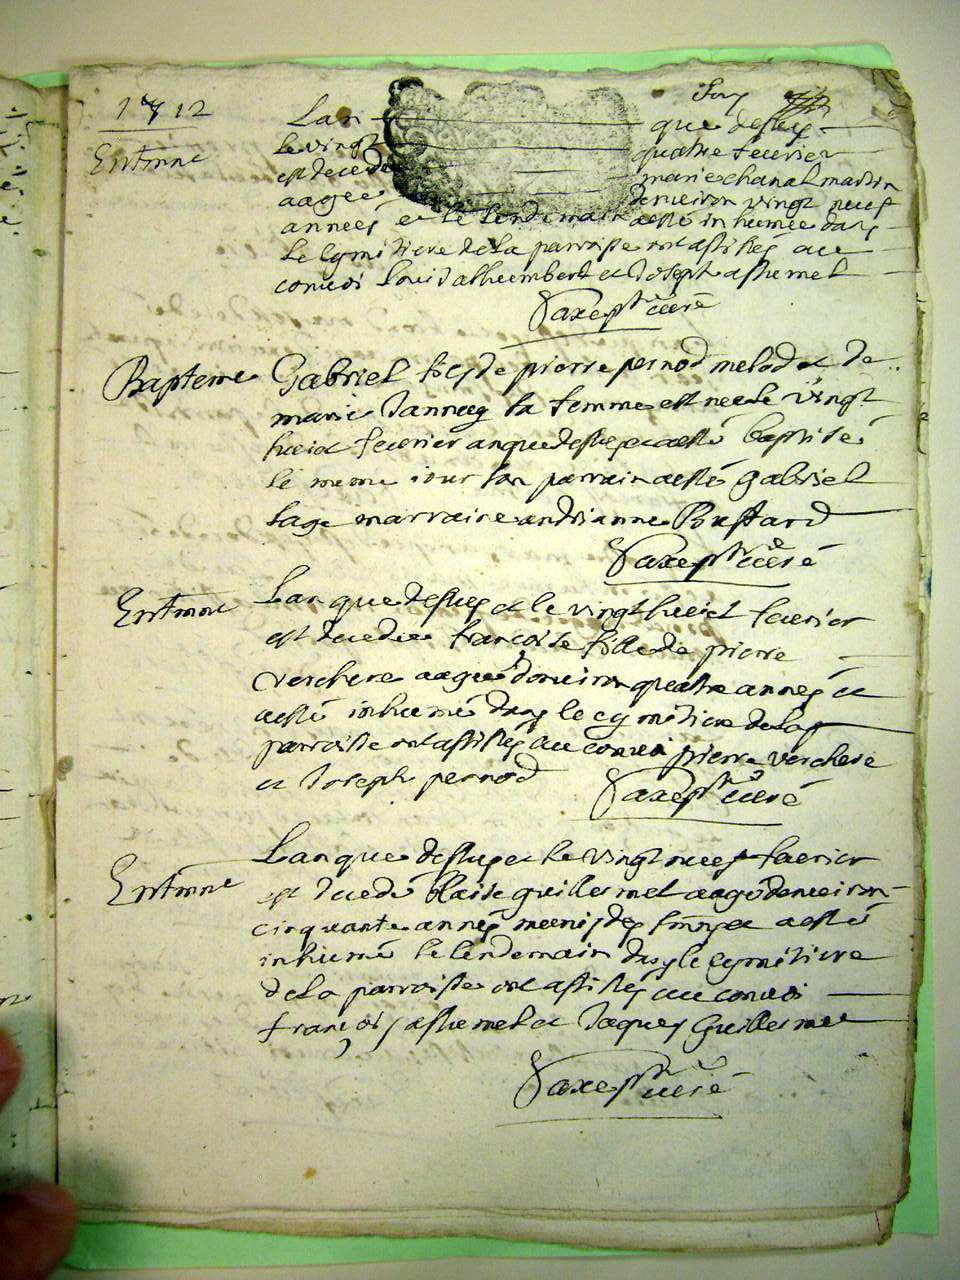 1712
Lan que dessus
Enterrement le vingt quatre feuvrier
est decedé marie chanal martin
aagée denuiron vingt neuf
années et le lendemain a esté inhumée dans
le cymitiere de la parroisse ont assistés au
convoi Louis alhumbert et Joseph
curé
Bapteme Gabriel fils de pierre pernod et de
marie sa femme est nee le vingt
huict feuvrier an que dessus et a esté baptisé
le meme iour son parrain a esté gabriel
sage marraine andrianne
curé
Lan que dessus et le vingt huict feuvrier
est decedée francoise fille de pierre
verchere aagée denuiron quatre années et
a esté inhumé dans le cymitiere de la
parroisse ont assistés au convoi pierre verchere
et Joseph pernod
curé
Lan que dessus et le vingt neuf feuvrier
est decedé blaise guillermet aagé denuiron
cinquante années et a esté
inhumé le lendemain dans le cymitiere
de la parroisse ont assistés au convoi
françois et Jaques Guillermet
curé